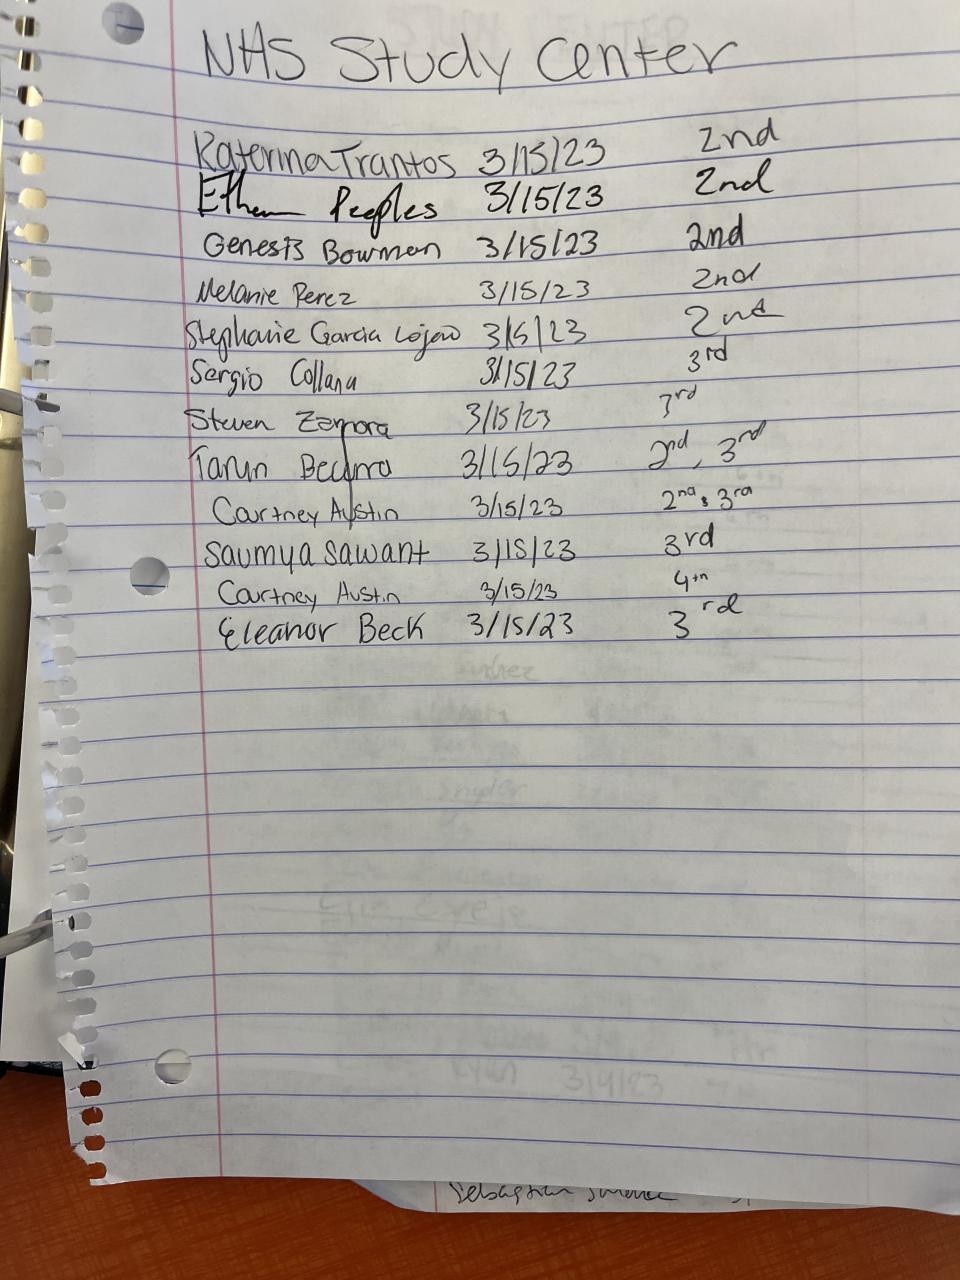 NHS Study Center
Katerina Trantos 3/15/23 2nd
Ethan Peeples 3/15/23 2nd
Genesis Bowman 3/15/23 2nd
Melanie Perez 3/15/23 2nd
Stephanie Garcia 3/15/23 2nd
Sergio Collana 3/15/23 3rd
Steven Zamora 3/15/23 3rd
Tarun 3/15/23 2nd, 3rd
Courtney Austin 3/15/23 2nd & 3rd
Saumya Sawant 3/15/23 3rd
Courtney Austin 3/15/23 4th
Eleanor Beck 3/15/23 3rd
Sebastian